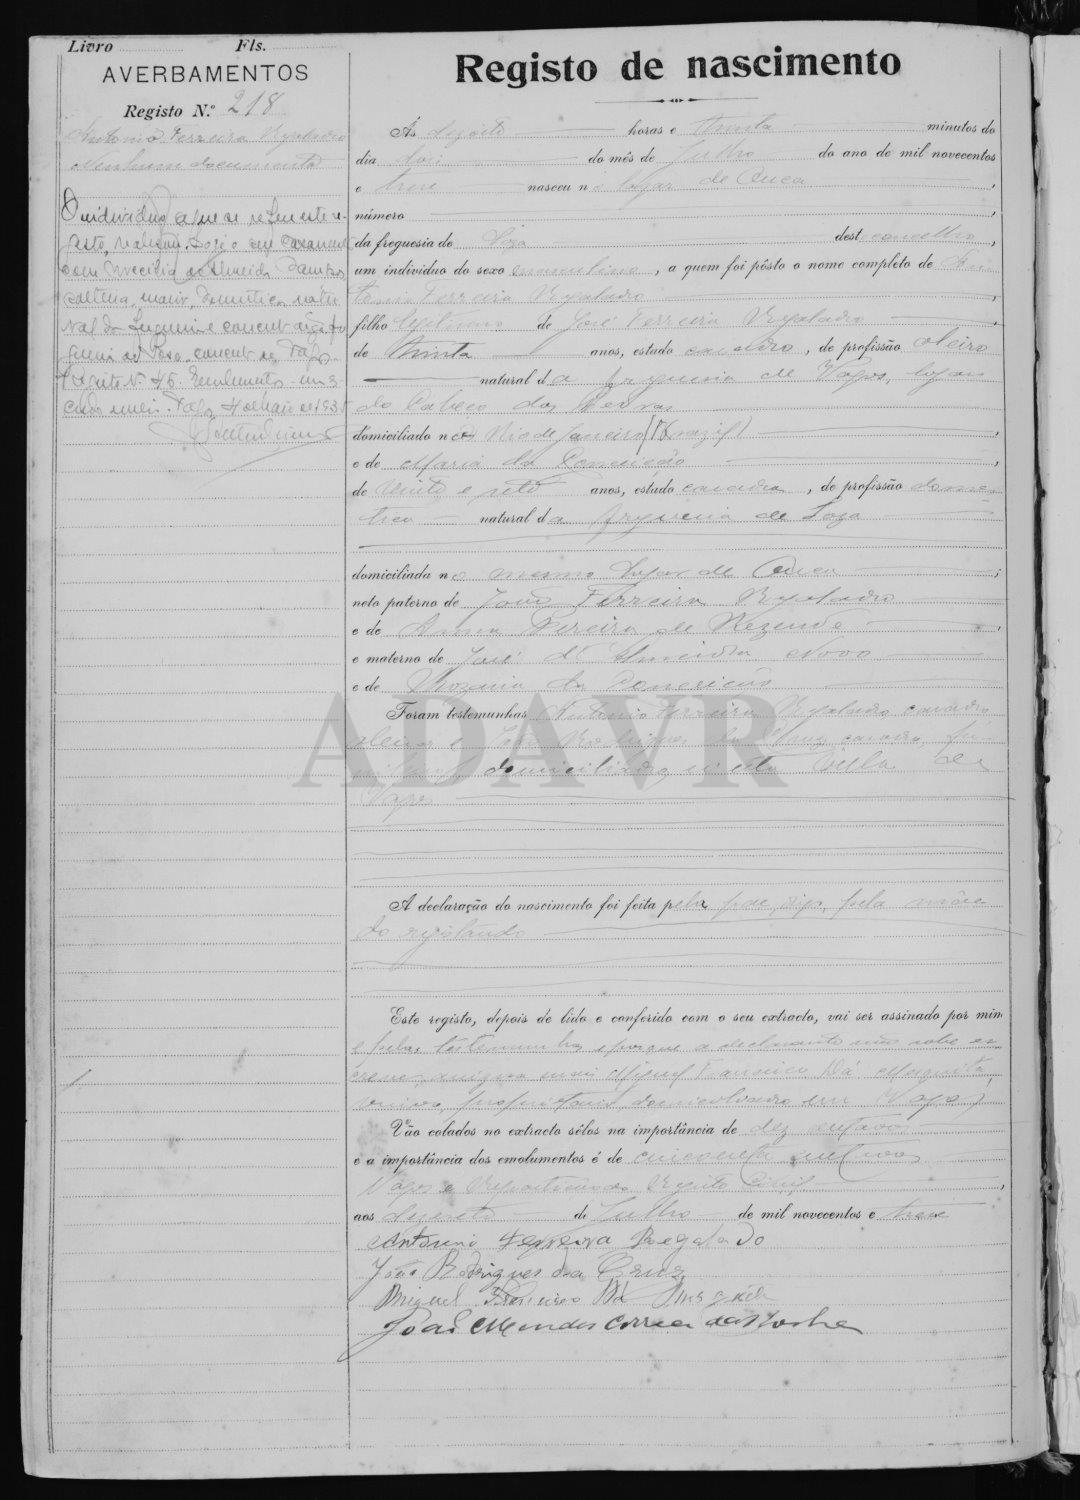 Livro Fls.
AVERBAMENTOS
Registo N.º 218
Antonio Ferreira Regalado
Nenhum documento
O individuo a que se refere este re-
gisto, realizou hoje o seu casamento
com Almeida
solteira, maior, domestica, natu-
ral da freguesia e concelho
Vagos
Registo N.º 45. Emolumentos
Registo de nascimento
Ás dezoito horas e trinta minutos do
dia dois do mês de Julho do ano de mil novecentos
e treze nasceu no logar de Ouca,
número
da freguesia de Soza deste concelho,
um individuo do sexo masculino, a quem foi pôsto o nome completo de An-
tonio Ferreira Regalado
filho legitimo de José Ferreira Regalado,
de trinta anos, estado casado, de profissão oleiro
natural da freguesia de Vagos, logar
do Cabeço das Pedras
domiciliado no Rio de Janeiro (Brazil),
e de Maria da Conceição,
de vinte e sete anos, estado casada, de profissão domes-
tica natural da freguesia de Soza
domiciliada no mesmo logar de Ouca;
neto paterno de João Ferreira Regalado
e de Anna Pereira de Rezende,
e materno de José d'Almeida Novo
e de Rozaria da Conceição
Foram testemunhas Antonio Ferreira Regalado, casado,
oleiro e João Rodrigues da Cruz, casado,
domiciliados nesta Villa de
Vagos
A declaração do nascimento foi feita pelo pae, digo, pela mãe
do registando
Este registo, depois de lido e conferido com o seu extracto, vai ser assinado por mim
e pelas testemunhas e porque a declarante não sabe es-
crever, assigna Miguel Francisco Dá Mesquita,
viuvo, proprietario, domiciliado em Vagos
Vão colados no extracto sêlos na importância de dez centavos
e a importância dos emolumentos é de cincoenta centavos
Vagos e Repartição do Registo Civil,
aos dezesete de Julho de mil novecentos e treze
Antonio Ferreira Regalado
João Rodrigues da Cruz
Miguel Francisco Dá Mesquita
João Mendes Correia da Rocha
ADAVR